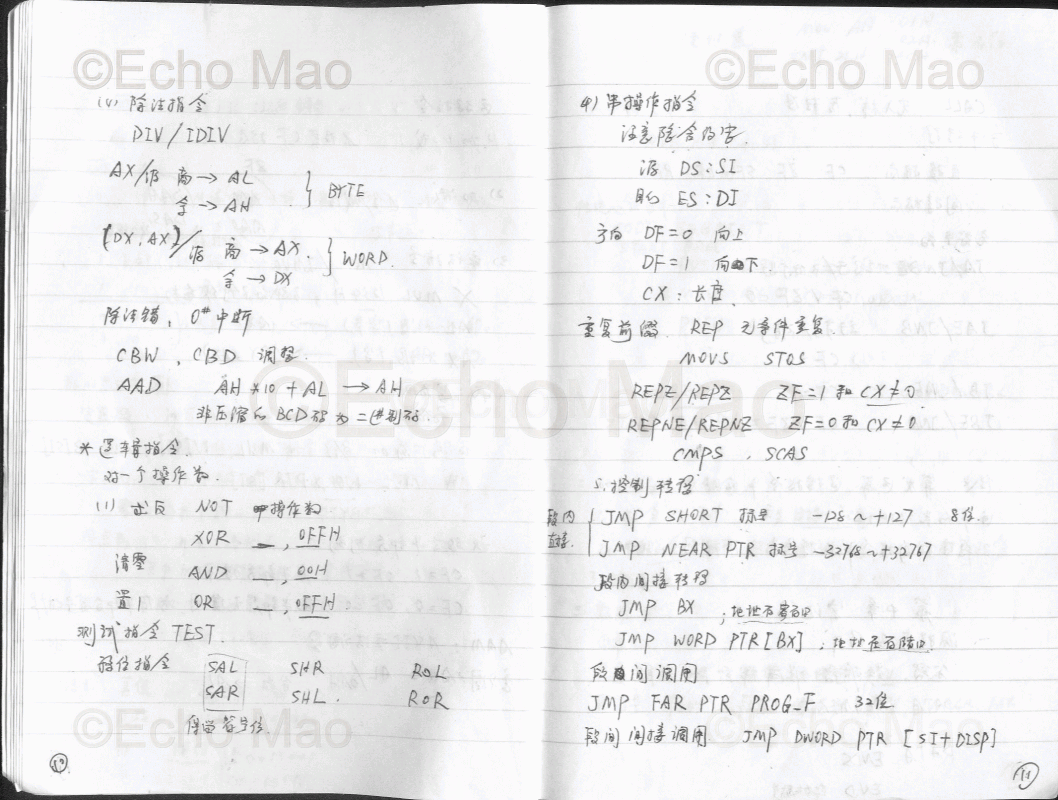 ©Echo Mao
(4) 除法指令
DIV / IDIV
AX/ 商→ AL
余→ AH } BYTE
(DX, AX)/ 商→AX
余→DX } WORD.
除法错, 0# 中断
CBW , CBD 调整.
AAD AH*10 + AL → AH
非压缩的 BCD码为二进制码.
* 逻辑指令.
对一个操作数.
(1) 求反 NOT 单操作数
XOR __, 0FFH
清零 AND __, 00H
置1 OR __, 0FFH
测试指令 TEST.
移位指令 SAL SHR ROL
SAR SHL. ROR
保留符号位
©Echo Mao
©Echo Mao
4) 串操作指令
注意隐含的字
源 DS:SI
目的 ES:DI
方向 DF=0 向上
DF=1 向下
CX: 长度.
重复前缀. REP 无条件重复
MOVS STOS
REPE/REPZ ZF=1 和 CX≠0
REPNE/REPNZ ZF=0 和 CX≠0
CMPS , SCAS
5. 控制转移
段内直接. JMP SHORT 标号 -128 ~ +127 8位
JMP NEAR PTR 标号 -32768 ~ +32767
段内间接转移
JMP BX ;地址在寄存
JMP WORD PTR [BX] ;地址在存储
段间调用
JMP FAR PTR PROG_F 32位
段间间接调用 JMP DWORD PTR [SI+DISP]
11
©Echo Mao
©Echo Mao